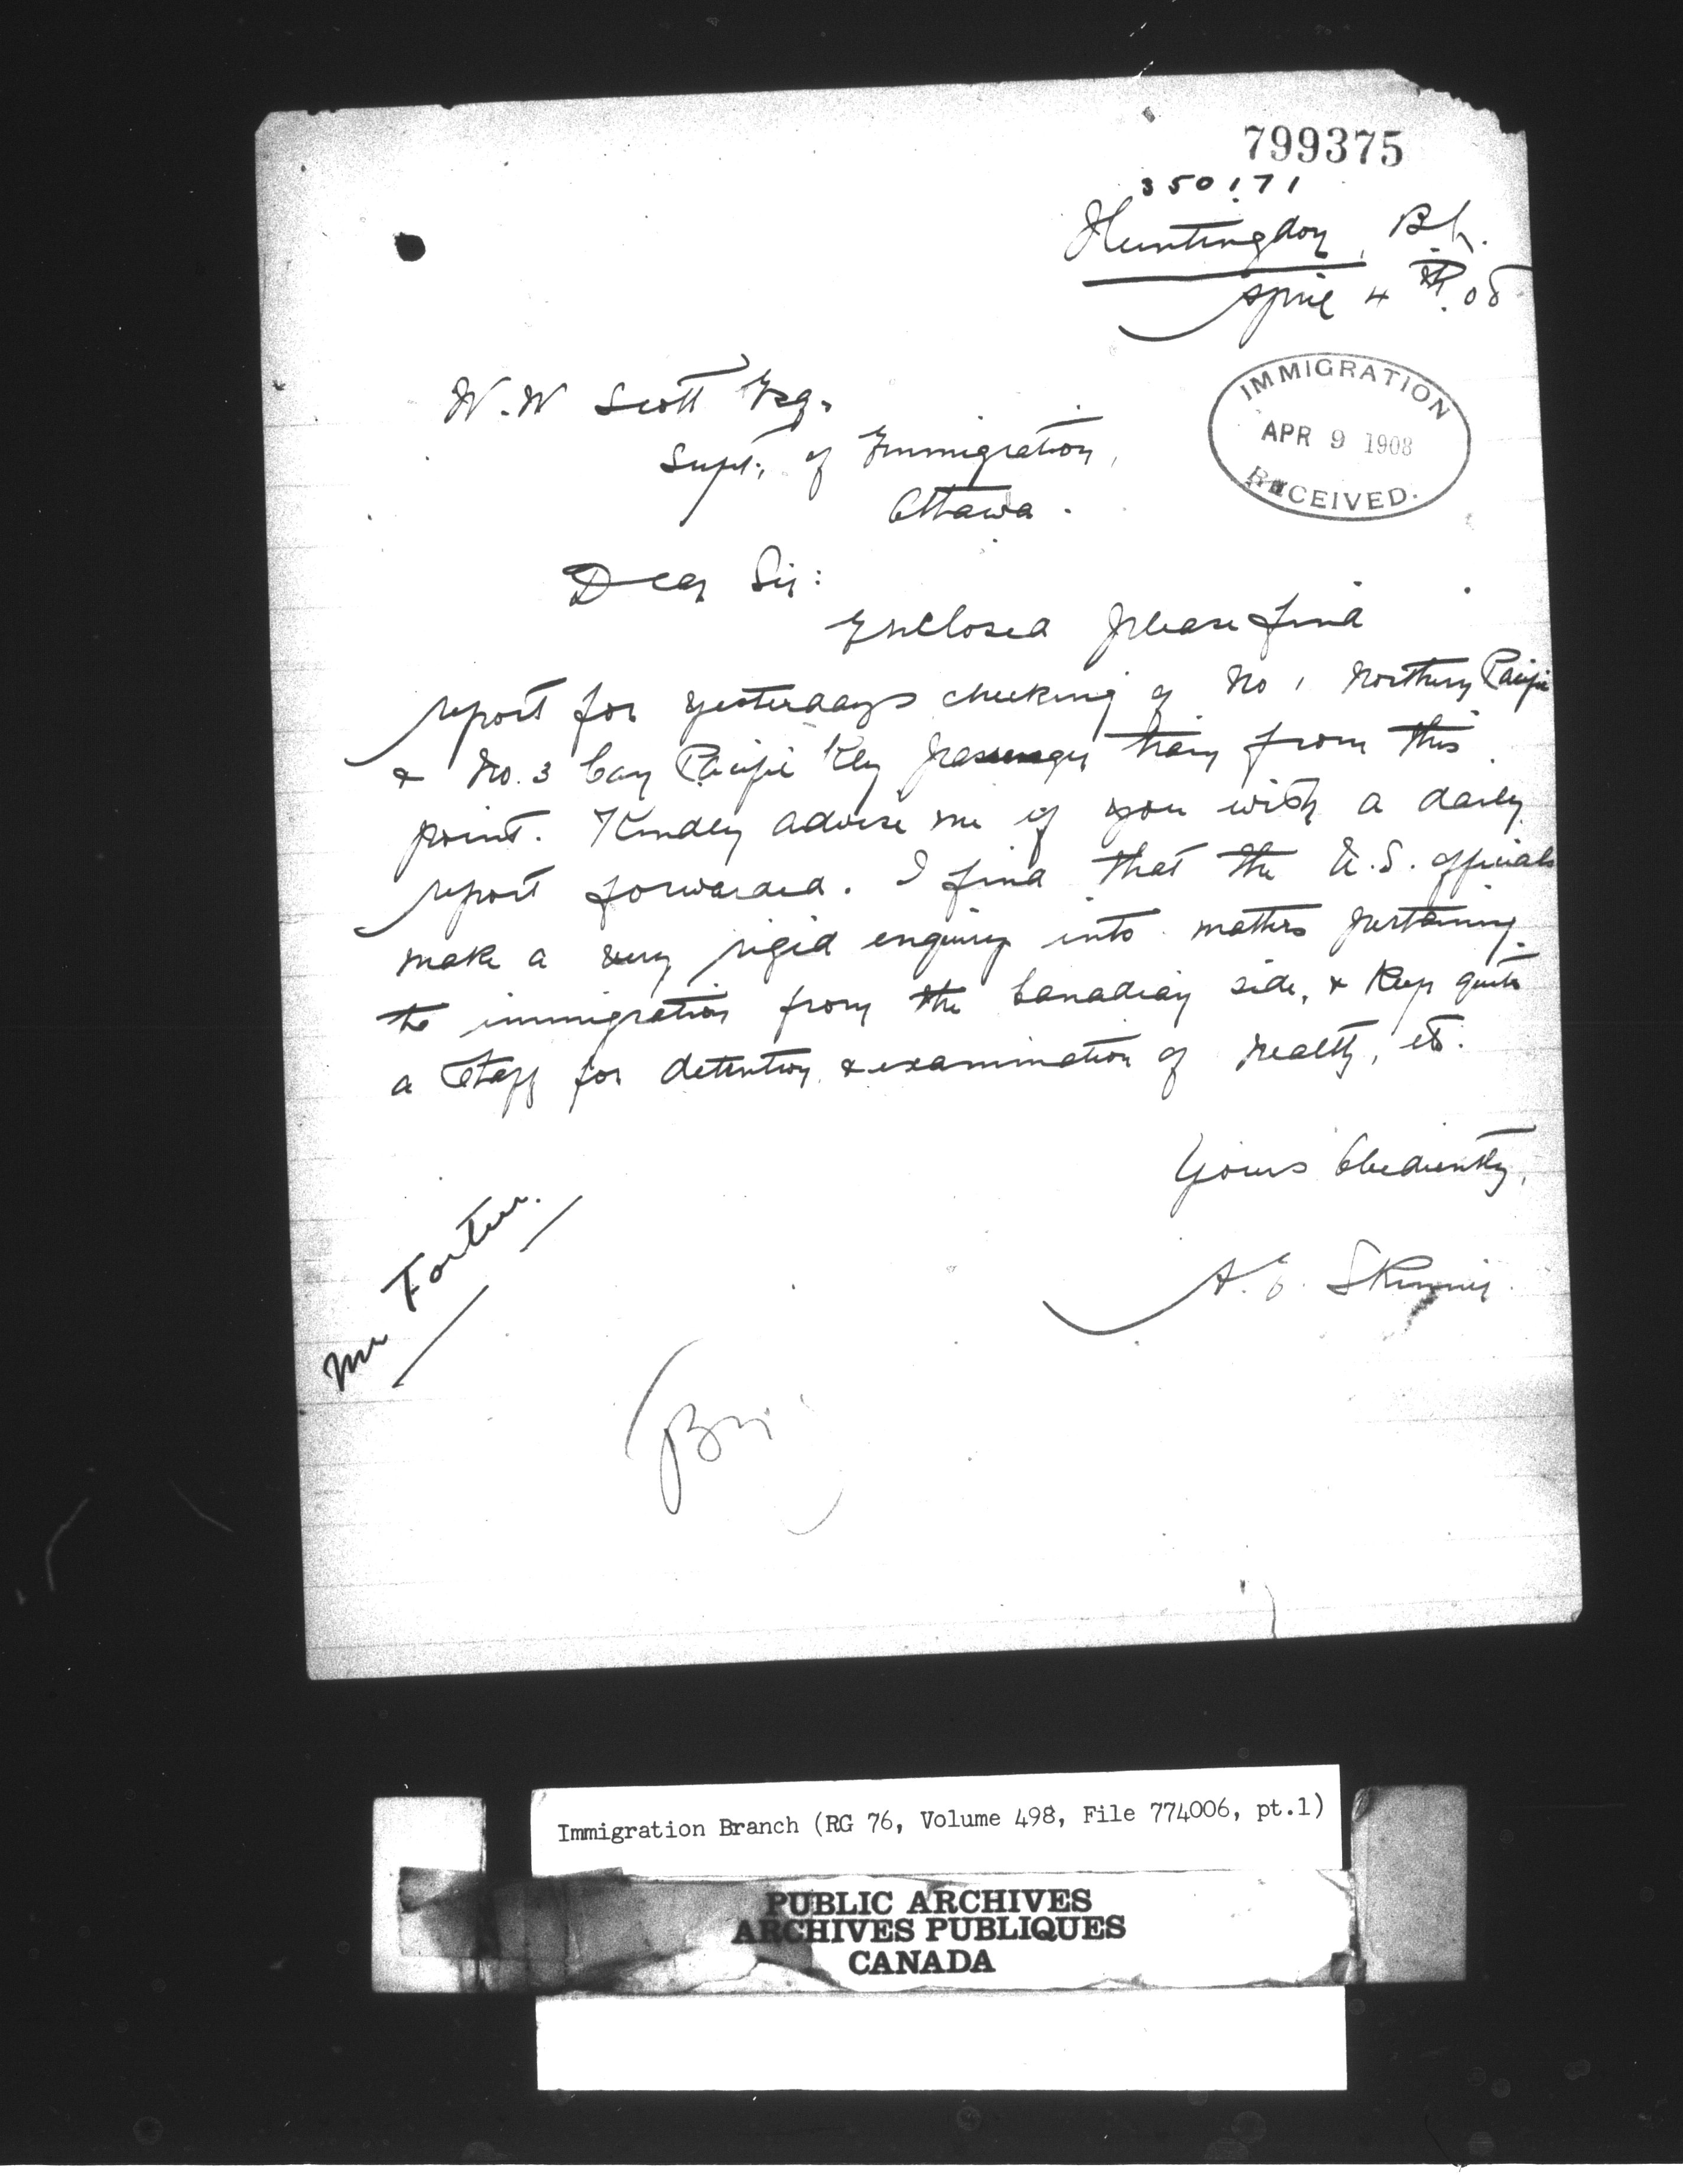 799375
350171
Huntingdon, B.C.
April 4th 08
W. W Scott Esq.
Supt. of Immigration,
Ottawa.
IMMIGRATION
APR 9 1908
RECEIVED.
Dear Sir:
Enclosed please find
report for yesterdays checking of No 1 Northern Pacific
& No. 3 Can Pacific Rly passenger train from this
point. Kindly advise me if you wish a daily
report forwarded. I find that the U.S. officials
make a very rigid enquiry into matters pertaining
to immigration from the Canadian side, & keep quite
a staff for detention & examination of health, etc.
Yours Obediently,
A. E. Skinner.
Mr Fortier.
Immigration Branch (RG 76, Volume 498, File 774006, pt.1)
PUBLIC ARCHIVES
ARCHIVES PUBLIQUES
CANADA